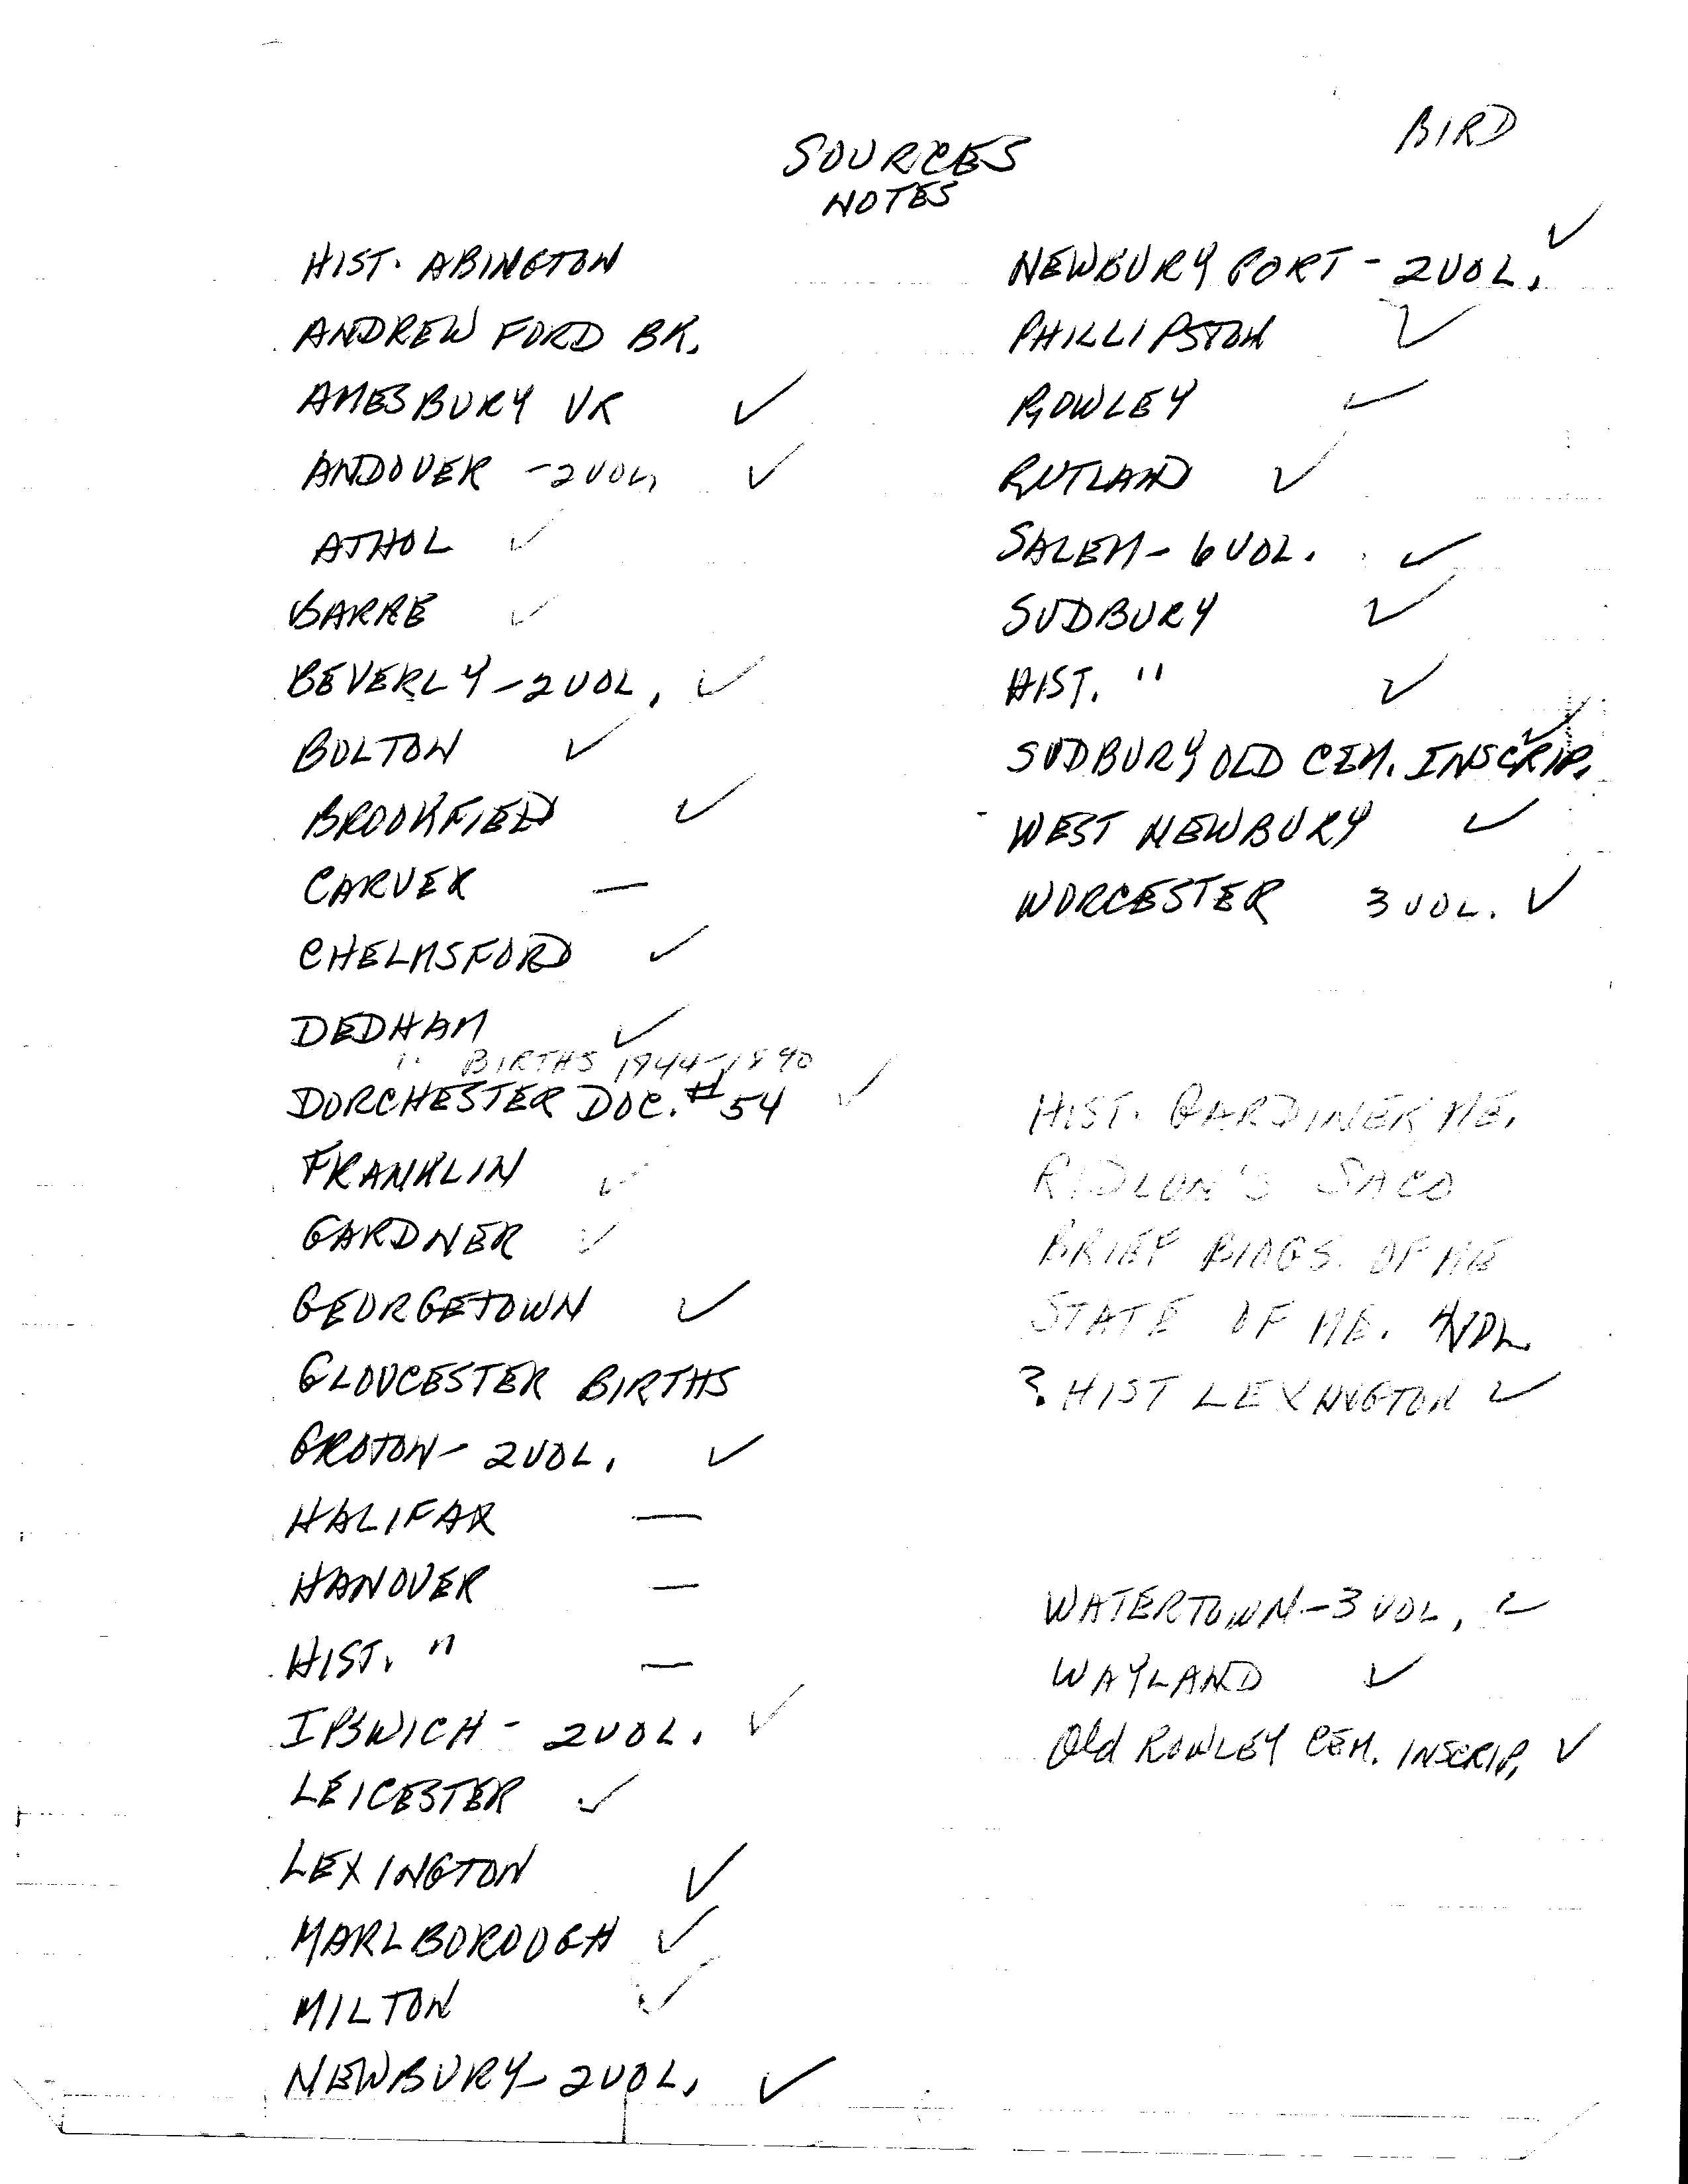 BIRD
SOURCES
NOTES
HIST. ABINGTON
ANDREW FORD BK.
AMESBURY VR ✓
ANDOVER - 2 VOL, ✓
ATHOL ✓
BARRE ✓
BEVERLY - 2 VOL, ✓
BOLTON ✓
BROOKFIELD ✓
CARVER —
CHELMSFORD ✓
DEDHAM ✓
" BIRTHS 1944-1890
DORCHESTER DOC. #54 ✓
FRANKLIN ✓
GARDNER ✓
GEORGETOWN ✓
GLOUCESTER BIRTHS
GROTON - 2 VOL, ✓
HALIFAX —
HANOVER —
HIST. " —
IPSWICH - 2 VOL. ✓
LEICESTER ✓
LEXINGTON ✓
MARLBOROUGH ✓
MILTON ✓
NEWBURY - 2 VOL, ✓
NEWBURY PORT - 2 VOL, ✓
PHILLIPSTON ✓
ROWLEY ✓
RUTLAND ✓
SALEM - 6 VOL. ✓
SUDBURY ✓
HIST. " ✓
SUDBURY OLD CEM. INSCRIP, ✓
WEST NEWBURY ✓
WORCESTER 3 VOL. ✓
HIST. GARDINER ME,
RIDLON'S SACO
BRIEF BIOGS. OF ME
STATE OF ME. 4 VOL.
? HIST LEXINGTON ✓
WATERTOWN - 3 VOL, ✓
WAYLAND ✓
Old ROWLEY CEM. INSCRIP, ✓